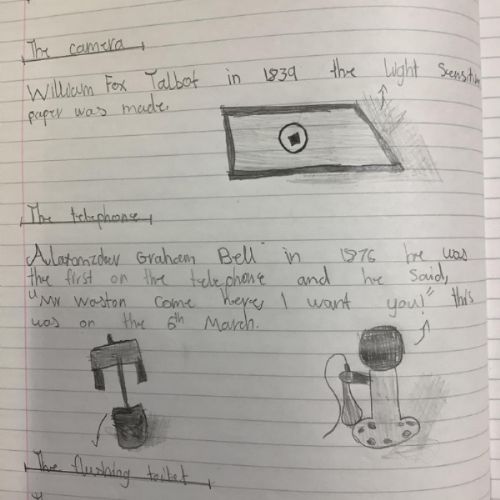 The camera
William Fox Talbot in 1839 the light Sensitive
paper was made.
The telephone
Alaxander Graham Bell in 1876 he was
the first on the telephone and he Said,
"Mr Waston Come here, I want you!" this
was on the 6th March.
The flushing toilet